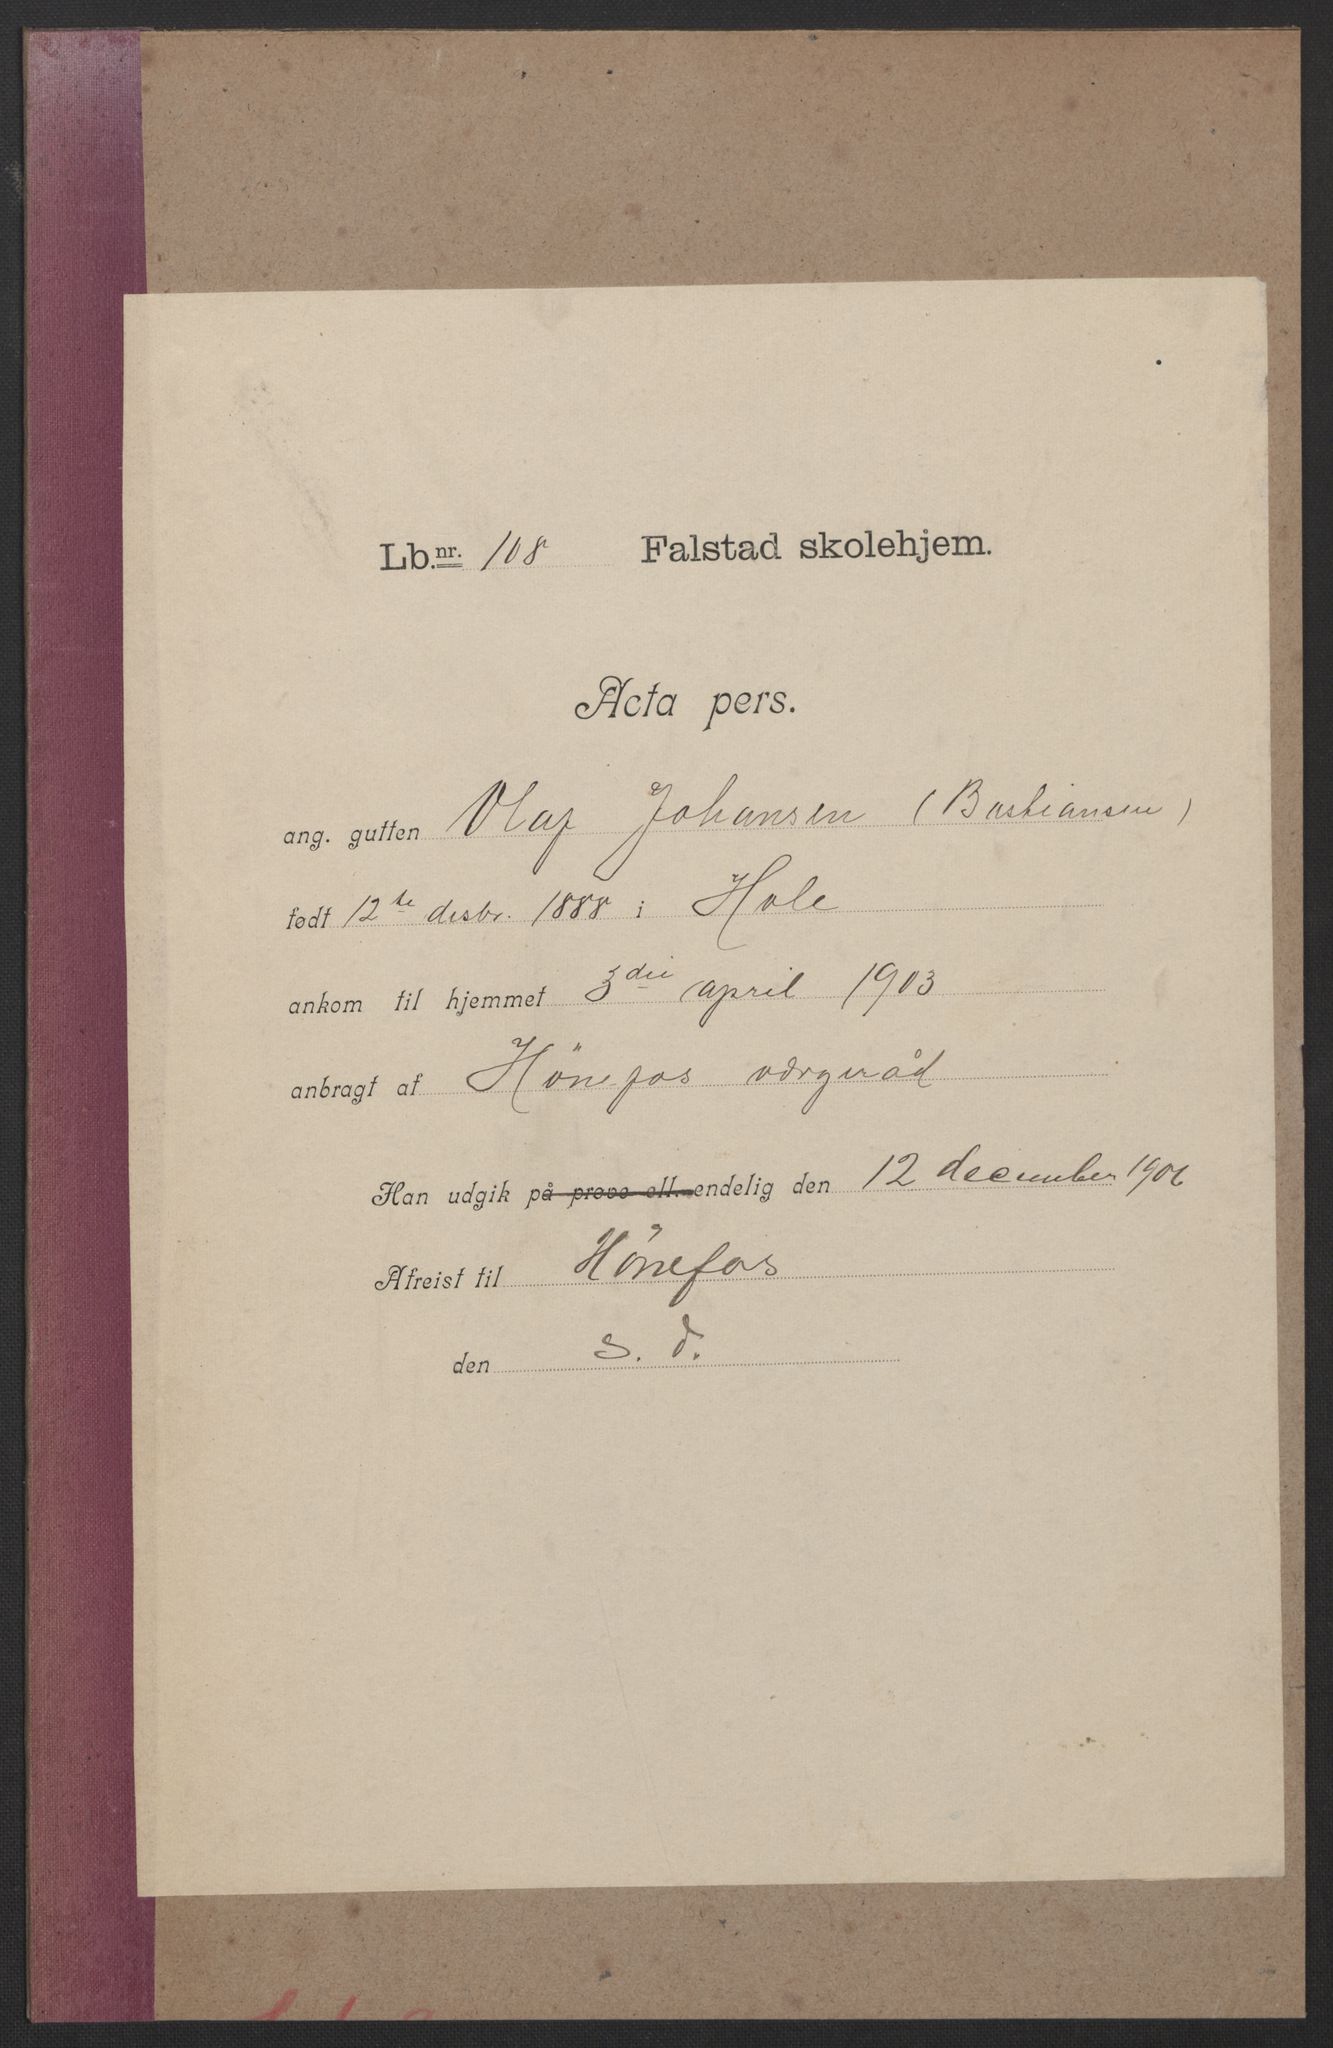 Lb.nr. 108 Falstad skolehjem.
Acta pers.
ang. gutten Olaf Johansen (Bastiansen)
født 12te desbr. 1888 i Hole
ankom til hjemmet 3die april 1903
anbragt af Hönefos værgeråd
Han udgik på prøve ell. endelig den 12 december 1906
Afreist til Hönefos
den s. d.